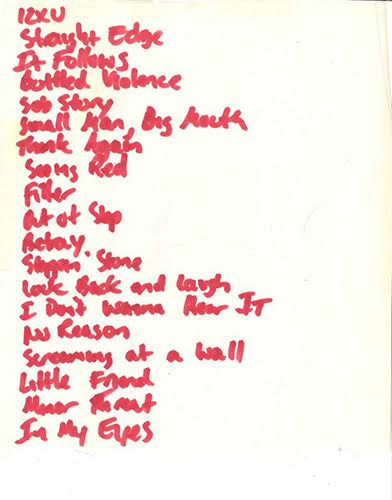 12XU
Straight Edge
It Follows
Bottled Violence
Sob Story
Small Man, Big Mouth
Think Again
Seeing Red
Filler
Out of Step
Betray
Steppin Stone
Look Back and Laugh
I Don't Wanna Hear IT
No Reason
Screaming at a Wall
Little Friend
Minor Threat
In My Eyes